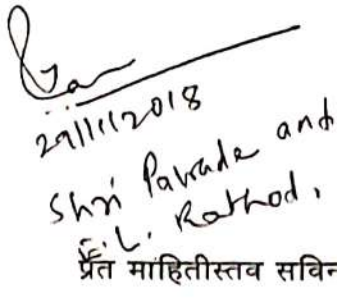 29/11/2018
Shri Pawade and
E. L. Rathod.
प्रत माहितीस्तव सविन